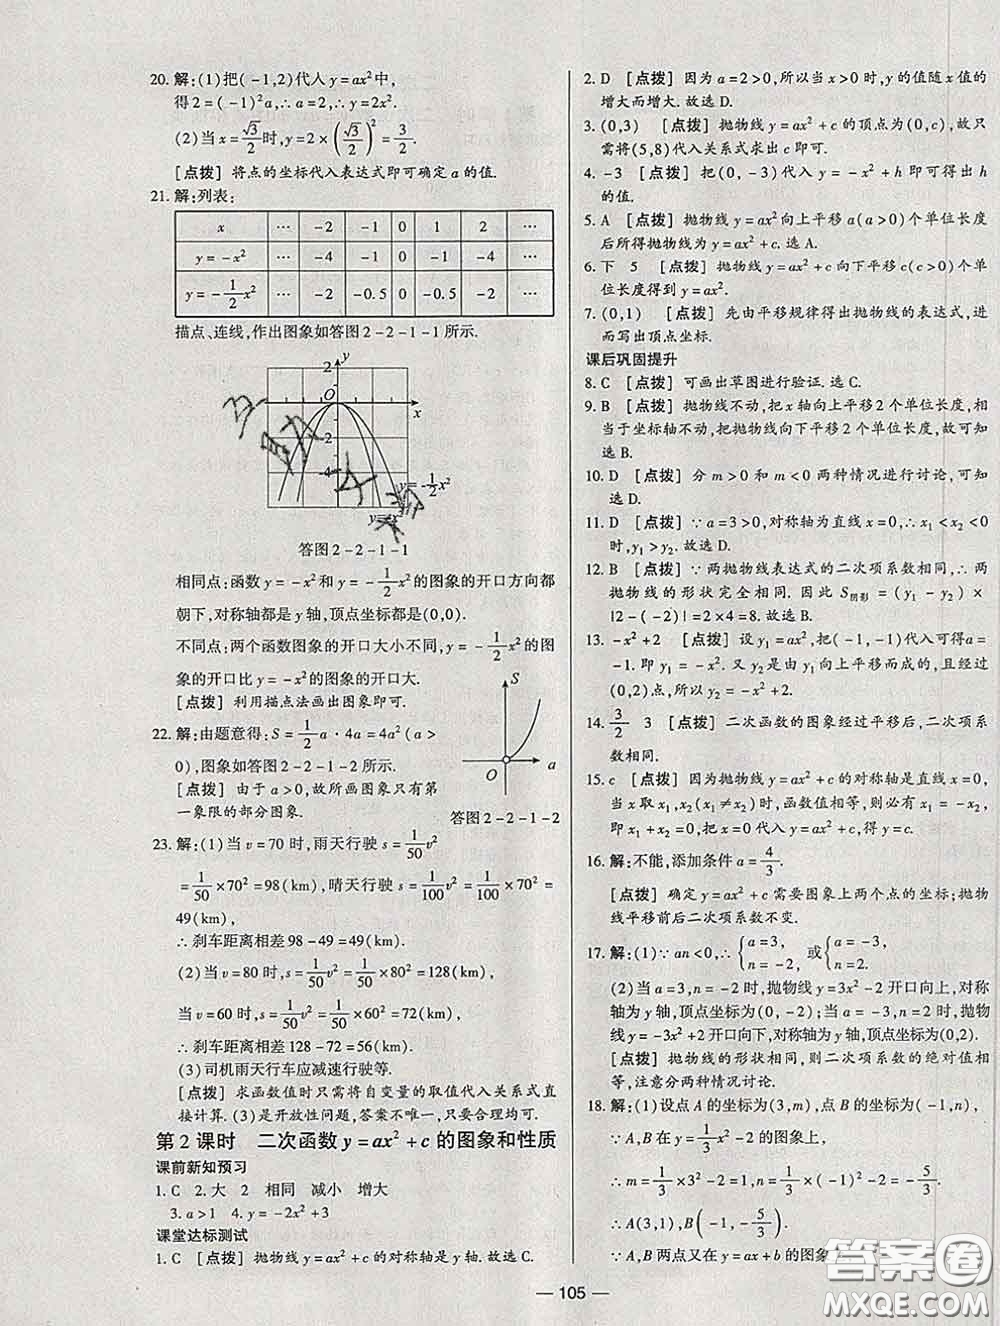 20. 解:(1)把(-1,2)代人 y=ax²中,
得2=(-1)²a,∴a=2,∴y=2x².
(2)当 x=√3/2时,y=2×(√3/2)²=3/2.
[点拨] 将点的坐标代入表达式即可确定 a 的值.
21. 解:列表:
x … -2 -1 0 1 2 …
y=-x² … -4 -1 0 -1 -4 …
y=-1/2x² … -2 -0.5 0 -0.5 -2 …
描点、连线,作出图象如答图2-2-1-1所示.
y
2
O
x
-2
-4
y=-1/2x²
y=-x²
答图2-2-1-1
相同点:函数 y=-x²和 y=-1/2x²的图象的开口方向都
朝下,对称轴都是 y 轴,顶点坐标都是(0,0).
不同点:两个函数图象的开口大小不同,y=-1/2x²的图
象的开口比 y=-x²的图象的开口大.
[点拨] 利用描点法画出图象即可.
22. 解:由题意得:S=1/2a·4a=4a²(a>
0),图象如答图2-2-1-2所示.
[点拨] 由于 a>0,故所画图象只有第
一象限的部分图象.
S
O
a
答图2-2-1-2
23. 解:(1)当 v=70 时,雨天行驶 s=1/50v²
=1/50×70²=98(km),晴天行驶 s=1/100v²=1/100×70²=
49(km),
∴刹车距离相差98-49=49(km).
(2)当 v=80 时,s=1/50v²=1/50×80²=128(km),
当 v=60 时,s=1/50v²=1/50×60²=72(km),
∴刹车距离相差128-72=56(km).
(3)司机雨天行车应减速行驶等.
[点拨] 求函数值时只需将自变量的取值代入关系式直
接计算.(3)是开放性问题,答案不唯一,只要合理均可.
第2课时 二次函数 y=ax²+c 的图象和性质
课前新知预习
1. C 2. 大 2 相同 减小 增大
3. a>1 4. y=-2x²+3
课堂达标测试
1. C [点拨] 抛物线 y=ax²+c 的对称轴是 y 轴.故选C.
2. D [点拨] 因为 a=2>0,所以当 x>0时,y的值随 x 值的
增大而增大.故选D.
3. (0,3) [点拨] 抛物线 y=ax²+c 的顶点为(0,c),故只
需将(5,8)代入关系式求出 c 即可.
4. -3 [点拨] 把(0,-3)代入 y=-x²+h 即可得出 h
的值.
5. A [点拨] 抛物线 y=ax²向上平移 a(a>0)个单位长度
后所得抛物线为 y=ax²+c.选A.
6. 下 5 [点拨] 抛物线 y=ax²+c向下平移 c(c>0)个单
位长度得到 y=ax².
7. (0,1) [点拨] 先由平移规律得出抛物线的表达式,进
而写出顶点坐标.
课后巩固提升
8. C [点拨] 可画出草图进行验证.选C.
9. B [点拨] 抛物线不动,把 x 轴向上平移2个单位长度,相
当于坐标轴不动,把抛物线向下平移2个单位长度,故可知
选B.
10. D [点拨] 分 m>0 和 m<0 两种情况进行讨论,可知
选D.
11. D [点拨] ∵a=3>0,对称轴为直线 x=0,∴x₁<x₂<0
时,y₁>y₂.故选D.
12. B [点拨] ∵两抛物线表达式的二次项系数相同,∴两
抛物线的形状完全相同.因此 S阴影=(y₁-y₂)×
|2-(-2)|=2×4=8.故选B.
13. -x²+2 [点拨] 设 y₁=ax²,把(-1,-1)代入可得a=
-1.即 y₁=-x².又 y₂是由 y₁向上平移而成的,且经过
(0,2)点,所以 y₂=-x²+2.
14. 3/2 3 [点拨] 二次函数的图象经过平移后,二次项系
数相同.
15. c [点拨] 因为抛物线 y=ax²+c 的对称轴是直线 x=0,
当 x 取 x₁,x₂(x₁≠x₂)时,函数值相等,则必有 x₁=-x₂,
即 x₁+x₂=0.把 x=0 代入 y=ax²+c,得 y=c.
16. 解:不能,添加条件 a=4/3.
[点拨] 确定 y=ax²+c需要图象上两个点的坐标;抛物
线平移前后二次项系数不变.
17. 解:(1)∵an<0,∴{a=3, n=-2, 或{a=-3, n=2.
(2)当 a=3,n=-2 时,抛物线 y=3x²-2 开口向上,对称
轴为 y轴,顶点坐标为(0,-2);当 a=-3,n=2 时,抛物
线 y=-3x²+2开口向下,对称轴为 y 轴,顶点坐标为(0,2).
[点拨] 抛物线的形状相同,则二次项系数的绝对值相
等,注意分两种情况讨论.
18. 解:(1)设点 A 的坐标为(3,m),点 B 的坐标为(-1,n),
∵A,B 在 y=1/3x²-2 的图象上,
∴m=1/3×3²-2=1,n=1/3×(-1)²-2=-5/3.
∴A(3,1),B(-1,-5/3).
∵A,B 两点又在 y=ax+b的图象
105
答案圈
MXQE.COM